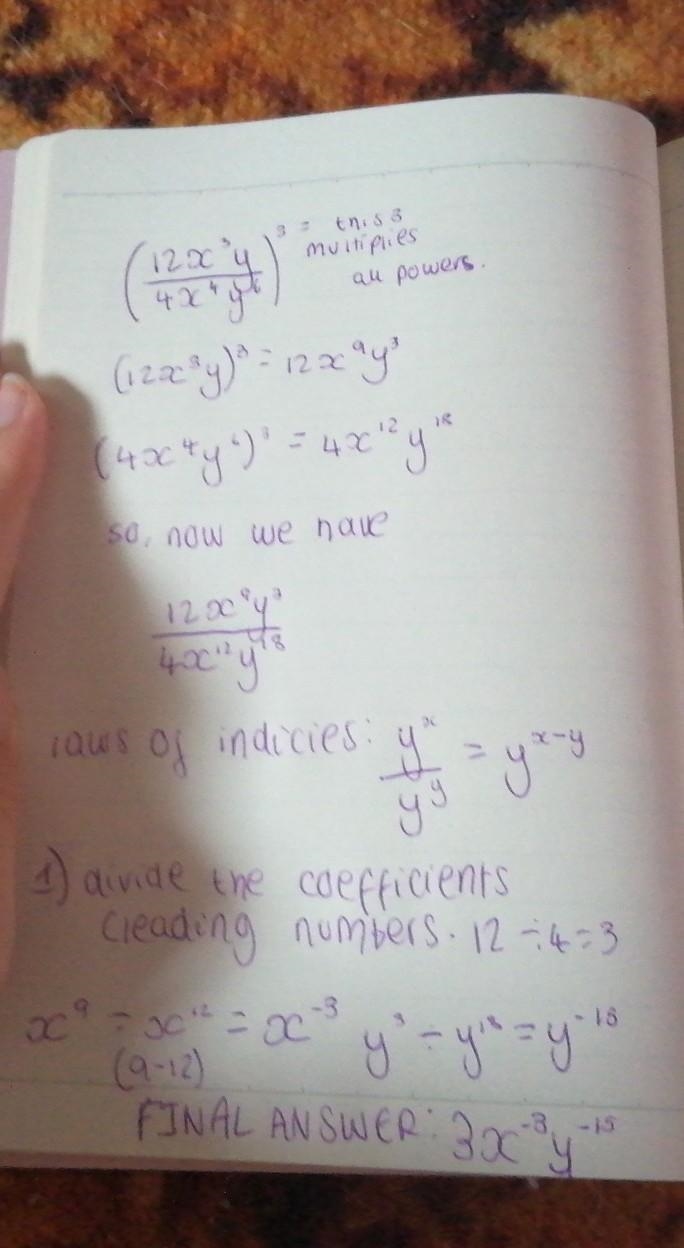 (12x³y / 4x⁴y⁶)³ = this 3
multiplies
all powers.
(12x³y)³ = 12x⁹y³
(4x⁴y⁶)³ = 4x¹²y¹⁸
so, now we have
12x⁹y³
4x¹²y¹⁸
laws of indicies: yˣ / yʸ = yˣ⁻ʸ
1) divide the coefficients
(leading numbers. 12 ÷ 4 = 3
x⁹ ÷ x¹² = x⁻³ y³ ÷ y¹⁸ = y⁻¹⁵
(9-12)
FINAL ANSWER: 3x⁻³y⁻¹⁵